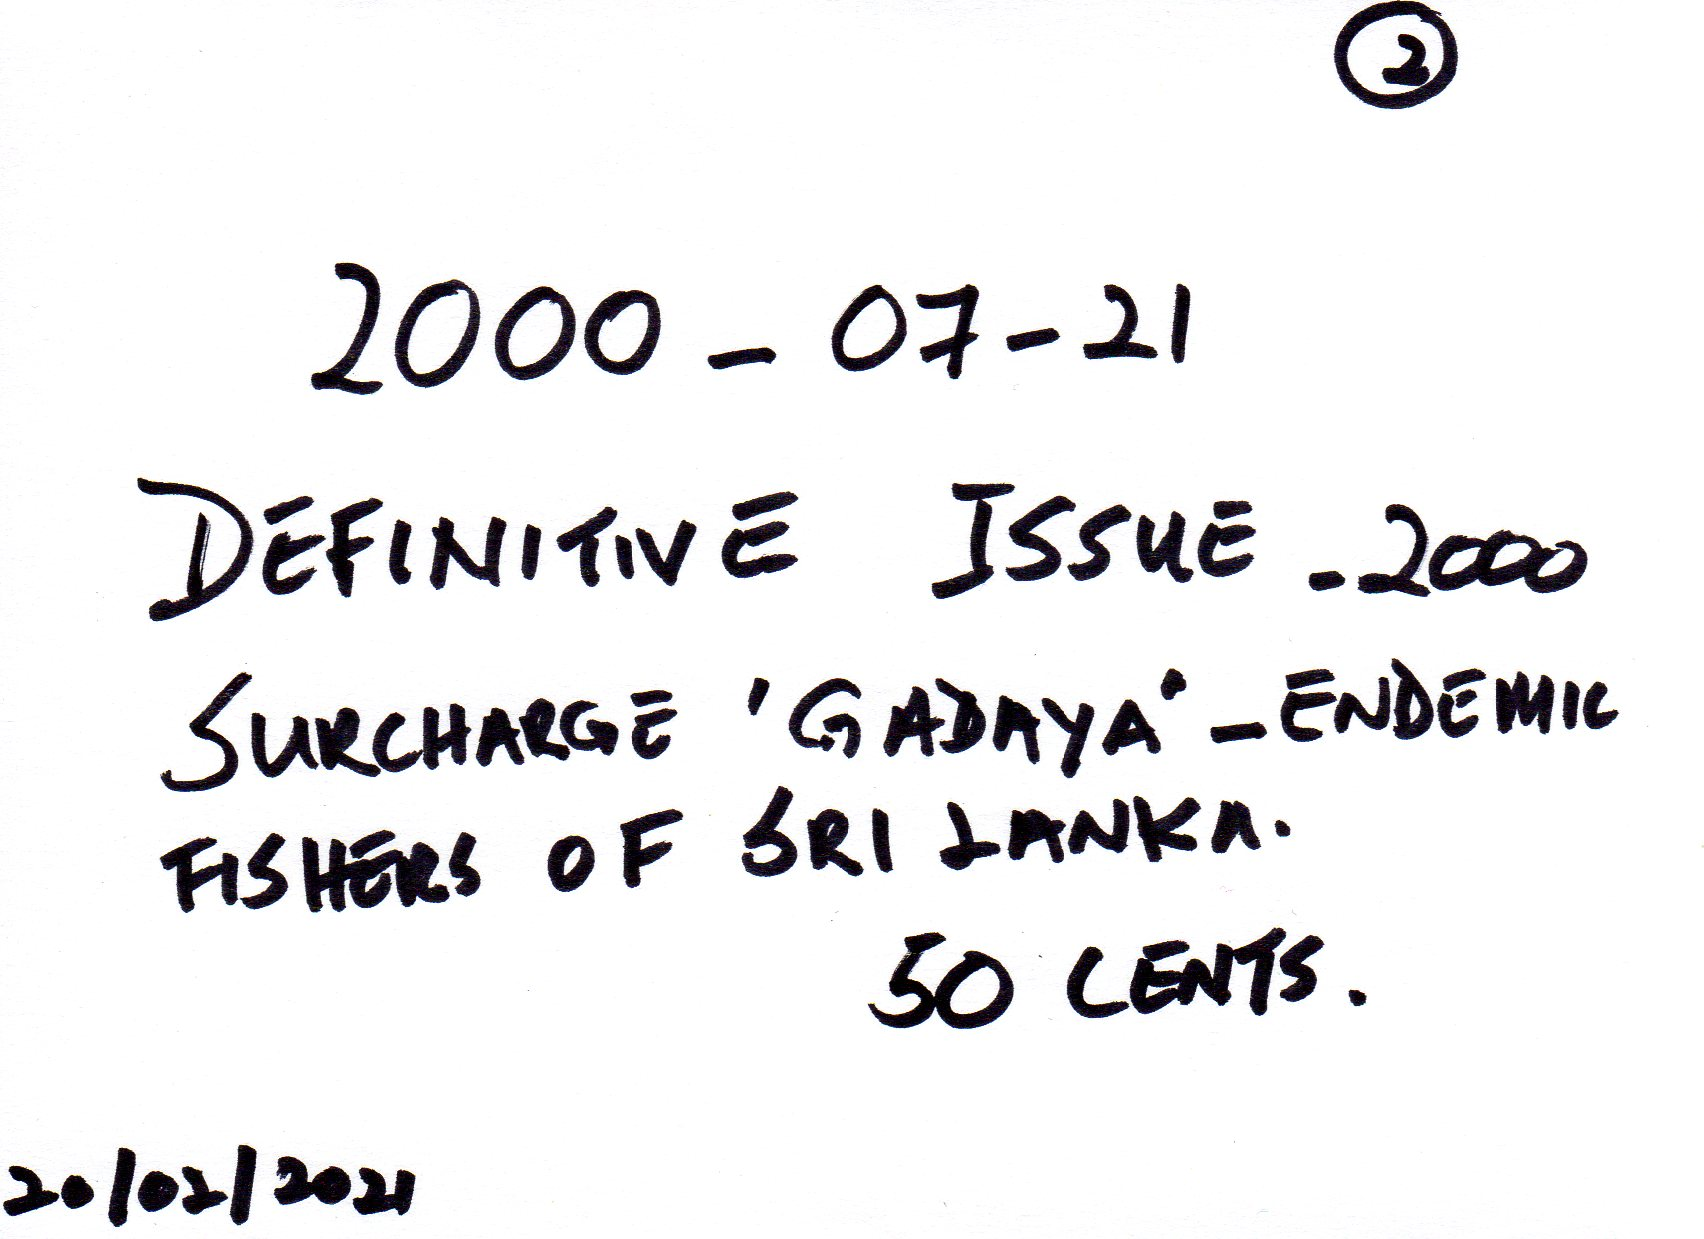 2
2000 - 07 - 21
DEFINITIVE ISSUE - 2000
SURCHARGE 'GADAYA' - ENDEMIC
FISHERS OF SRI LANKA.
50 CENTS.
20/02/2021